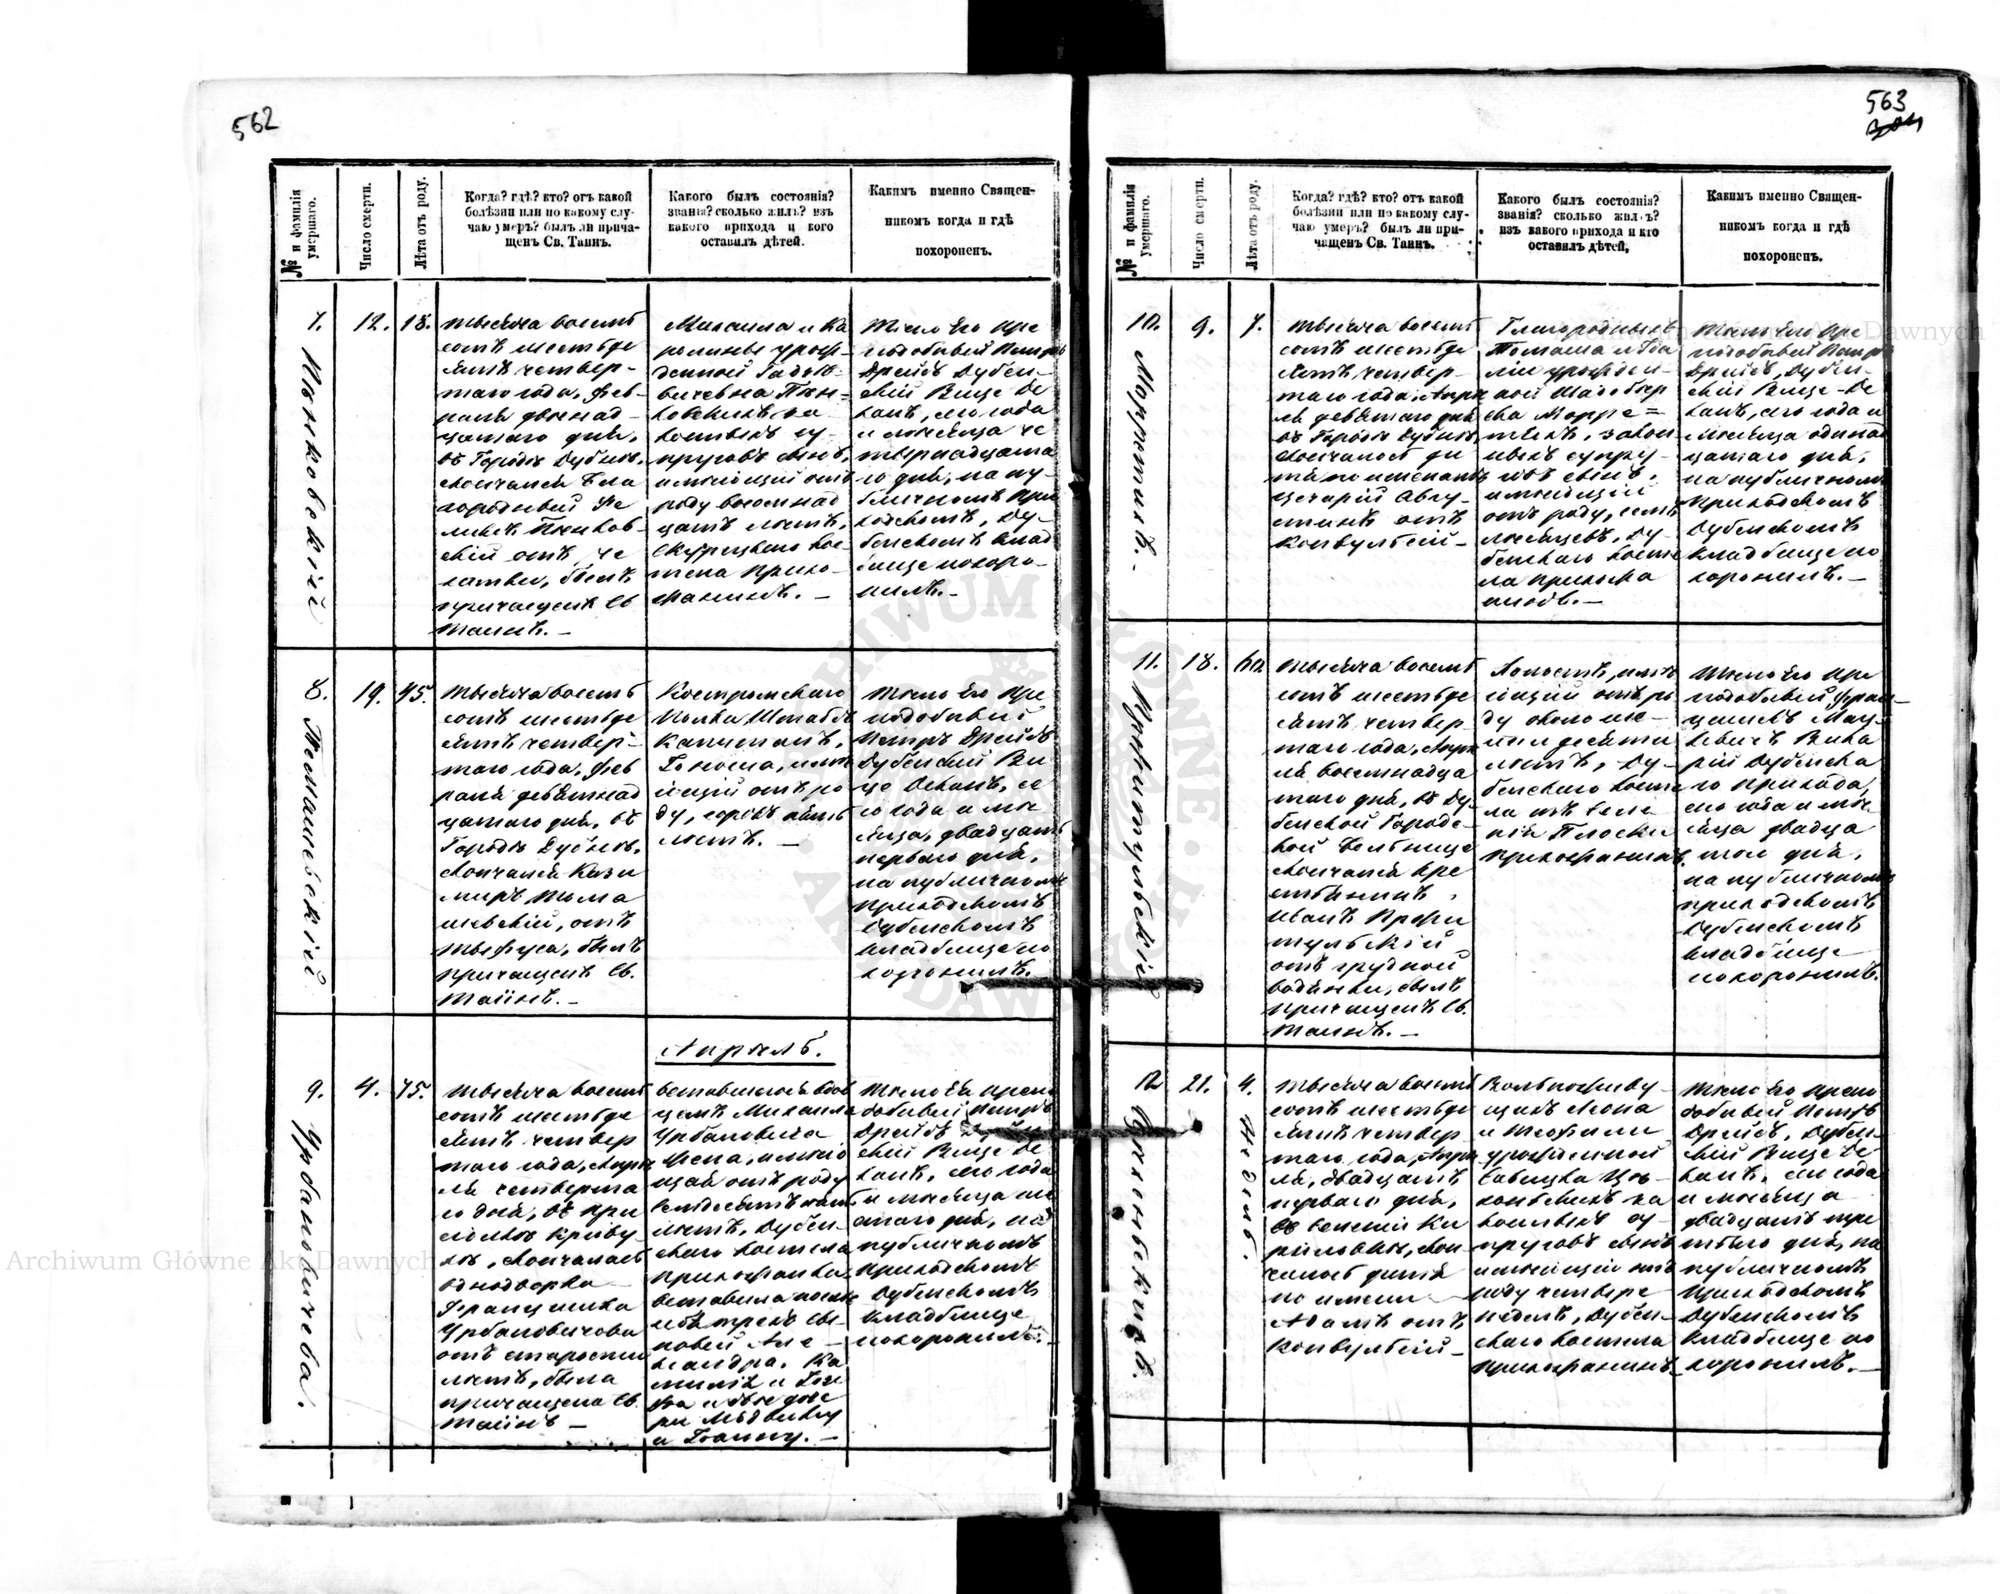 562
№ и фамилія умершаго.
Число смерти.
Лѣта отъ роду.
Когда? гдѣ? кто? отъ какой
болѣзни или по какому слу-
чаю умеръ? былъ ли прича-
щенъ Св. Таинъ.
Какого былъ состоянія?
званія? сколько жилъ? изъ
какого прихода и кого
оставилъ дѣтей.
Какимъ именно Священ-
никомъ когда и гдѣ
похороненъ.
7.
12.
18.
Тысяча восемь
сотъ шестьде
сятъ четвер-
таго года, фев-
раля двѣнад-
цатаго дня,
въ Городѣ Дубнѣ,
скончался Бла
городный Фе
ликсъ
скій отъ че
хотки, былъ
причащенъ Св.
Таинъ. —
Михаила и Ка
ролины урож-
денной
вичевна
ковскихъ за
конныхъ су-
пруговъ сынъ,
имѣющій отъ
роду восемнад
цать лѣтъ,
кос-
тела прихо-
жанинъ. —
Тѣло Его Пре
подобный Петръ
Дрейсъ Дубен-
скій Вице Де
канъ, сего года
и мѣсяца че
тырнадцата
го дня, на пу-
бличномъ При
ходскомъ, Ду-
бенскомъ клад
бище похоро-
нилъ. —
8. Томашевскій
19.
45.
Тысяча восемь
сотъ шестьде
сятъ четвер-
таго года, фев
раля девятнад
цатаго дня, въ
Городѣ Дубнѣ,
скончался Кази
миръ Тома
шевскій, отъ
тыфуса, былъ
причащенъ Св.
Таинъ. —
Костромскаго
Полка Штабсъ
Капитанъ,
имѣ
ющій отъ ро
ду, сорокъ пять
лѣтъ. —
Тѣло Его Пре
подобный
Петръ Дрейсъ
Дубенскій Ви
це Деканъ, се
го года и мѣ
сяца, двадцать
перваго дня,
на публичномъ
приходскомъ
Дубенскомъ
кладбище по
хоронилъ.
Апрѣль.
9. Урбановичева.
4.
75.
Тысяча восемь
сотъ шестьде
сятъ четвер
таго года, Апрѣ
ля четверта
го дня, въ при
сёлкѣ
скончалась
однодворка
Францишка
Урбановичова
отъ старости
лѣтъ, была
причащена Св.
Таинъ —
Оставшагося вдов
цемъ Михаила
Урбановича
жена, имѣю
щая отъ роду
семдесятъ пять
лѣтъ, Дубен-
скаго костела
прихожанка
оставила после
себя трехъ сы
новей Але-
ксандра, Ка
и
и двѣ доче
ри
и Іоанну. —
Тѣло Ея Препо
добный Петръ
Дрейсъ Дубен
скій Вице Де
канъ, сего года
и мѣсяца ше
стаго дня, на
публичномъ
приходскомъ
Дубенскомъ
кладбище
похоронилъ.
563
№ и фамилія умершаго.
Число смерти.
Лѣта отъ роду.
Когда? гдѣ? кто? отъ какой
болѣзни или по какому слу-
чаю умеръ? былъ ли при-
чащенъ Св. Таинъ.
Какого былъ состоянія?
званія? сколько жилъ?
изъ какого прихода и кто
оставилъ дѣтей.
Какимъ именно Священ-
никомъ когда и гдѣ
похороненъ.
10.
9.
7.
Тысяча восемь
сотъ шестьде
сятъ четвер-
таго года, Апрѣ
ля девятаго дня
въ Городѣ Дубнѣ
скончалось ди
тя по имени
Авгу-
стинъ отъ
конвульсій —
Благородныхъ
Томаша и
урожден-
ной
законъ
ныхъ супру
говъ сынъ,
имѣющій
отъ роду, семь
мѣсяцевъ, Ду-
бенскаго косте
ла прихожа
нинъ. —
Тѣло Его Пре
подобный Петръ
Дрейсъ, Дубен-
скій Вице-Де
канъ, сего года и
мѣсяца одинад
цатаго дня,
на публичномъ
приходскомъ
Дубенскомъ
кладбище по
хоронилъ. —
11.
18.
60.
Тысяча восемь
сотъ шестьде
сятъ четвер
таго года, Апрѣ
ля восемнадца
таго дня, въ Ду-
бенской Городс-
кой больнице
скончался Кре
стьянинъ
Иванъ
отъ грудной
водянки, былъ
причащенъ Св.
Таинъ. —
Холостъ, имѣ
ющій отъ ро
ду около ше-
стидесяти
лѣтъ, Ду-
бенскаго косте
ла изъ селе
нія
прихожанинъ.
Тѣло Его Пре
подобный Фран-
цишекъ Мац-
кевичъ Вика
рій Дубенска
го прихода,
сего года и мѣ
сяца двадца
таго дня,
на публичномъ
приходскомъ
Дубенскомъ
кладбище
похоронилъ.
12.
21.
4. недѣль.
Тысяча восемь
сотъ шестьде
сятъ четвер
таго года, Апрѣ
ля, двадцать
перваго дня,
въ селеніи Ки
рилловкѣ, скон
чалось дитя
по имени
Адамъ отъ
конвульсій —
Вольноживу-
щихъ Леона
и Теофили
урожденной
за
конныхъ су-
пруговъ сынъ
имѣющій отъ
роду четыре
недѣли, Дубен-
скаго костела
прихожанинъ
Тѣло Его Препо
добный Петръ
Дрейсъ, Дубен-
скій Вице Де-
канъ, сего года
и мѣсяца
двадцать тре
тьяго дня, на
публичномъ
приходскомъ
Дубенскомъ
кладбище по
хоронилъ. —
Archiwum Główne Akt Dawnych